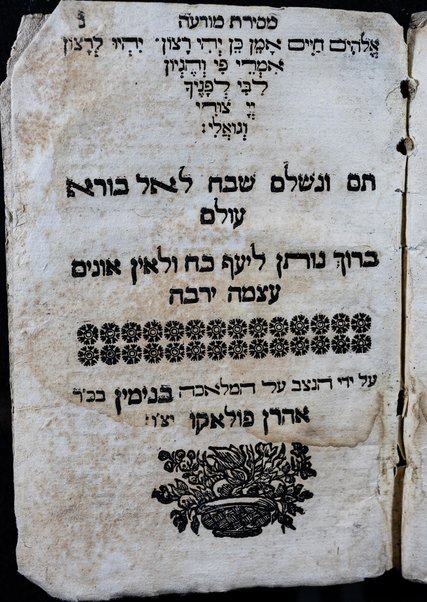 מסירת מודעה נ
אֱלֹהִים חַיִּים אָמֵן כֵּן יְהִי רָצוֹן׃ יִהְיוּ לְרָצוֹן
אִמְרֵי פִי וְהֶגְיוֹן
לִבִּי לְפָנֶיךָ
יְיָ צוּרִי
וְגוֹאֲלִי׃
תם ונשלם שבח לאל בורא
עולם
ברוך נותן ליעף כח ולאין אונים
עצמה ירבה
על ידי הנצב על המלאכה בנימין בכ״ר
אהרן פולאקו יצ״ו׃